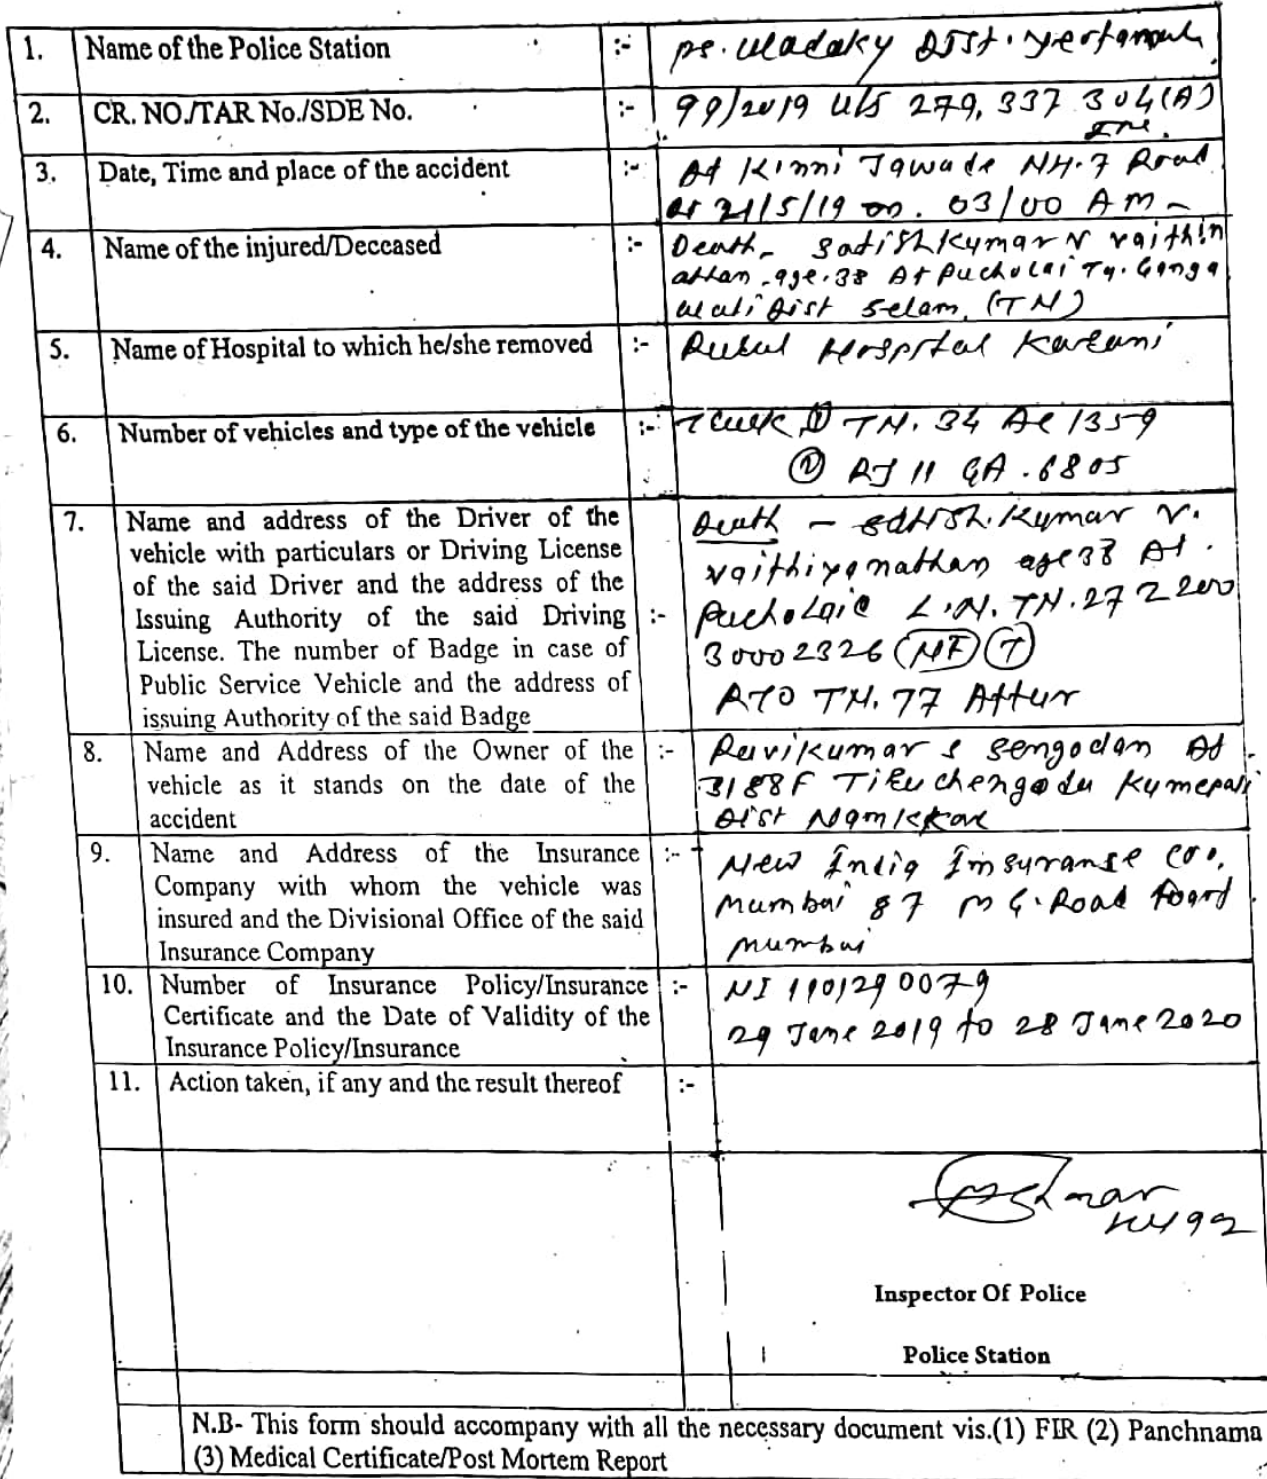 1. Name of the Police Station :- ps. Wadaky Dist. Yeotamal
2. CR. NO./TAR No./SDE No. :- 99/2019 U/S 279, 337 304(A)
IPC.
3. Date, Time and place of the accident :- At Kinni Jawade NH.7 Road
21/5/19 on. 03/00 AM
4. Name of the injured/Deceased :- Death - Satishkumar V vaithin
athan. age. 38 At Pucholai Tq. Ganga
Dist Selam. (TN)
5. Name of Hospital to which he/she removed :- Rural Hospital Karanji
6. Number of vehicles and type of the vehicle :- Truck ① TN. 34 Ae 1359
② RJ 11 GA. 6805
7. Name and address of the Driver of the
vehicle with particulars or Driving License
of the said Driver and the address of the
Issuing Authority of the said Driving
License. The number of Badge in case of
Public Service Vehicle and the address of
issuing Authority of the said Badge
:- Death - Satish.Kumar V.
vaithiyanathan age 38 At.
L.N. TN. 27 Z 200
30002326 (NT) (T)
RTO TN. 77 Attur
8. Name and Address of the Owner of the
vehicle as it stands on the date of the
accident
:- Ravikumar s Sengodan At
3/88F Tiruchengodu Kumepali
Dist Namkkal
9. Name and Address of the Insurance
Company with whom the vehicle was
insured and the Divisional Office of the said
Insurance Company
:- New India Insuranse Co.,
Mumbai 87 M G. Road Foard
Mumbai
10. Number of Insurance Policy/Insurance
Certificate and the Date of Validity of the
Insurance Policy/Insurance
:- NI 110129 0079
29 June 2019 to 28 June 2020
11. Action taken, if any and the result thereof :-
Inspector Of Police
Police Station
N.B- This form should accompany with all the necessary document vis.(1) FIR (2) Panchnama
(3) Medical Certificate/Post Mortem Report